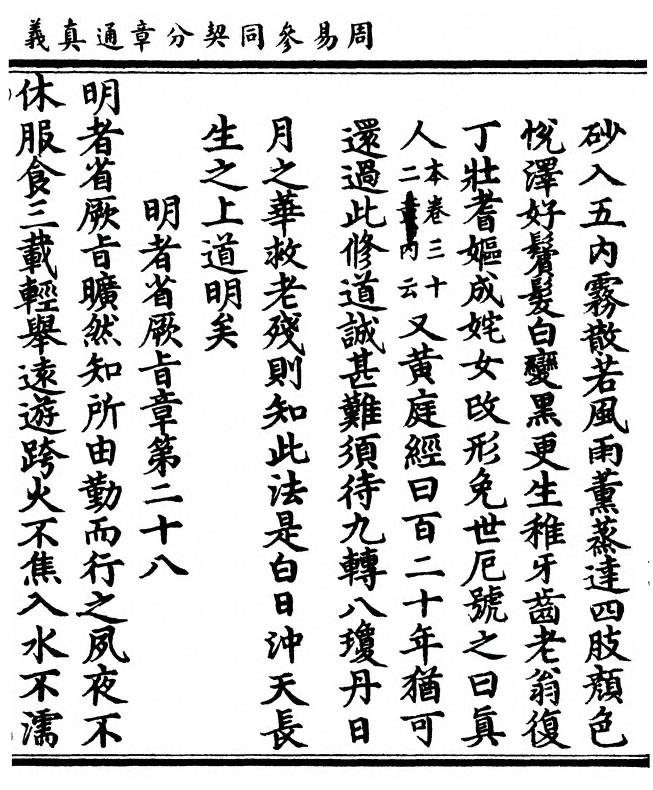 周易參同契分章通真義
砂入五內霧散若風雨薰蒸達四肢顏色
悅澤好鬢髮白變黑更生稚牙齒老翁復
丁壯耆嫗成姹女改形免世厄號之曰眞
人本卷三十二章內云又黃庭經曰百二十年猶可
還過此修道誠甚難須待九轉八瓊丹日
月之華救老殘則知此法是白日沖天長
生之上道明矣
明者省厥旨章第二十八
明者省厥旨曠然知所由勤而行之夙夜不
休服食三載輕舉遠遊跨火不焦入水不濡